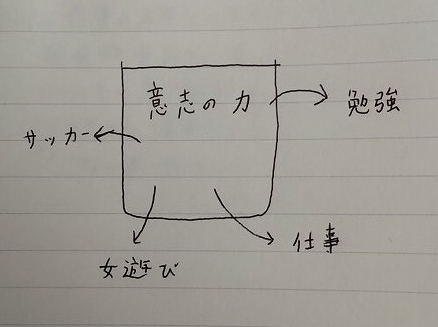 意志の力
勉強
サッカー
仕事
女遊び